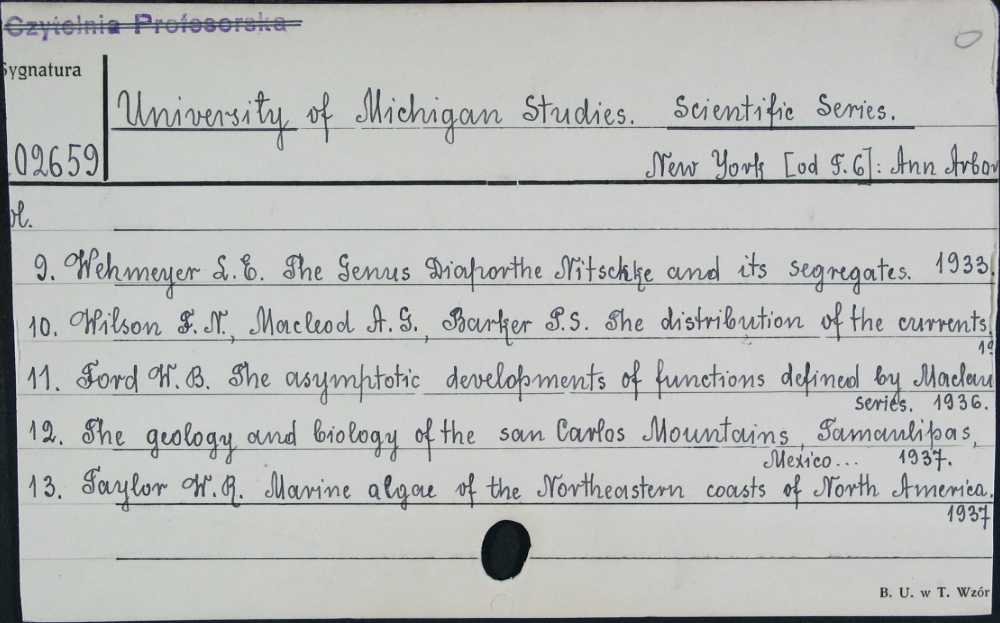 Czytelnia Profesorska
Sygnatura
University of Michigan Studies. Scientific Series.
02659
New York [od T.6]: Ann Arbor
vol.
9. Wehmeyer L.E. The Genus Diaporthe Nitschke and its segregates. 1933.
10. Wilson F.N., Macleod A.G., Barker P.S. The distribution of the currents.
19
11. Ford W.B. The asymptotic developments of functions defined by Maclau
series. 1936.
12. The geology and biology of the san Carlos Mountains, Tamaulipas,
Mexico... 1937.
13. Taylor W.R. Marine algae of the Northeastern coasts of North America.
1937
B. U. w T. Wzór